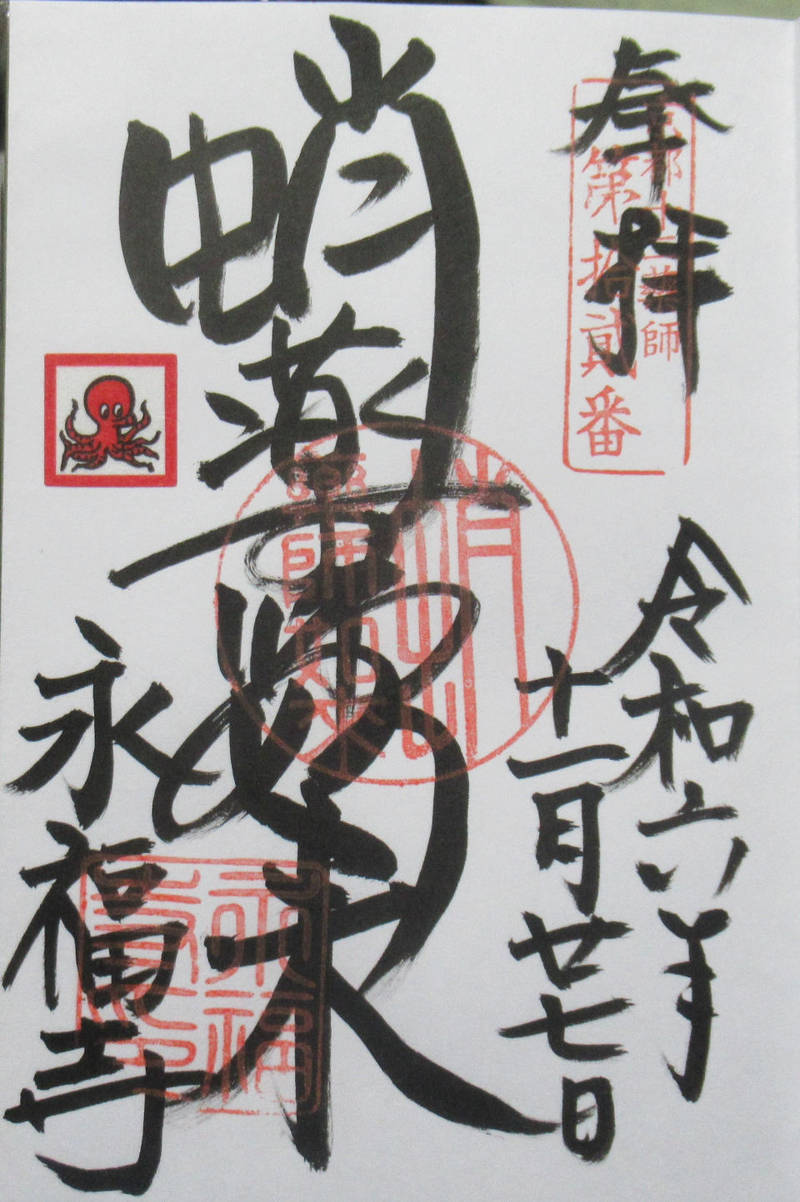 奉拝
京都十二薬師
第拾貳番
令和六年
十一月廿七日
蛸薬師如来
蛸
藥師如來
永福寺
永福